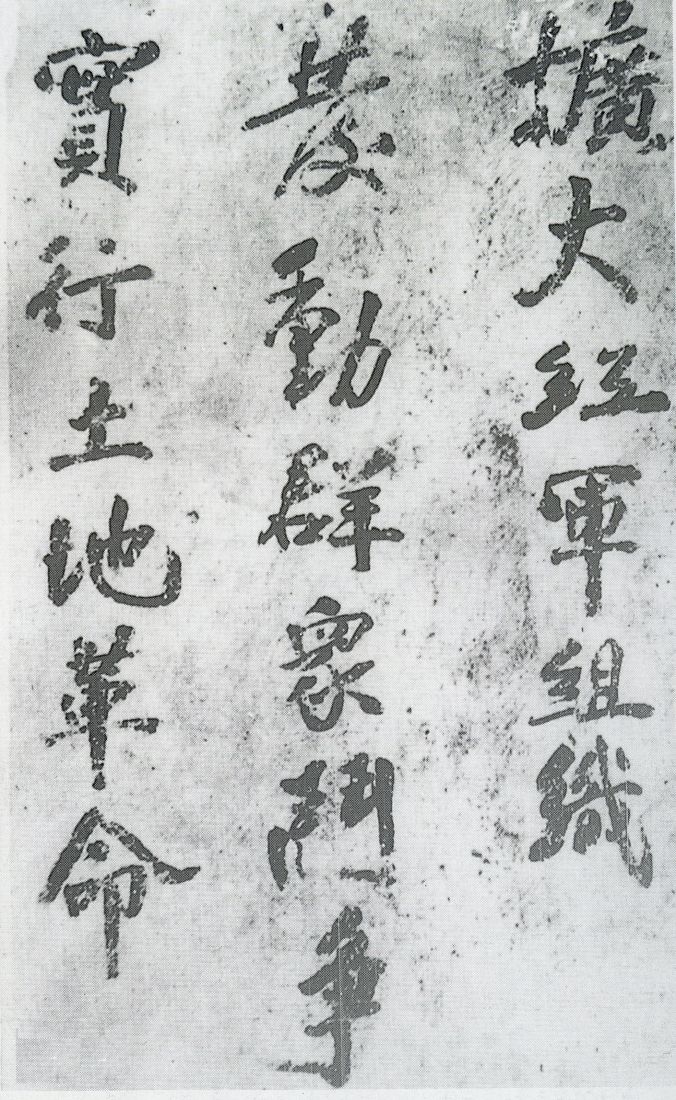 擴大紅軍組織
發動群衆鬥争
實行土地革命